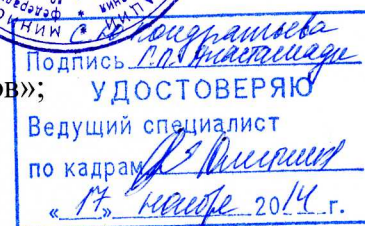 Кондратьева
Подпись Г.П. Анастасиади
ов»;
УДОСТОВЕРЯЮ
Ведущий специалист
по кадрам
«17» ноября 2014 г.